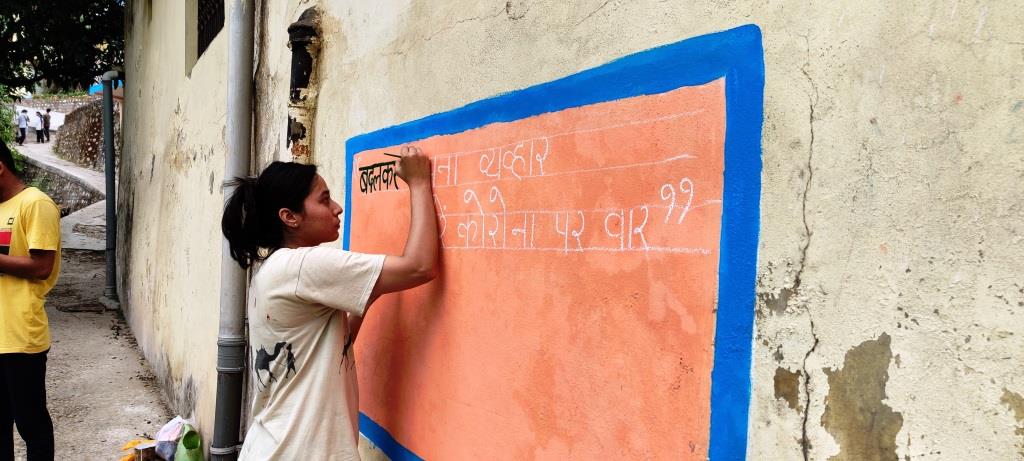 बदलकर व्यव्हार
कोरोना पर वार ”